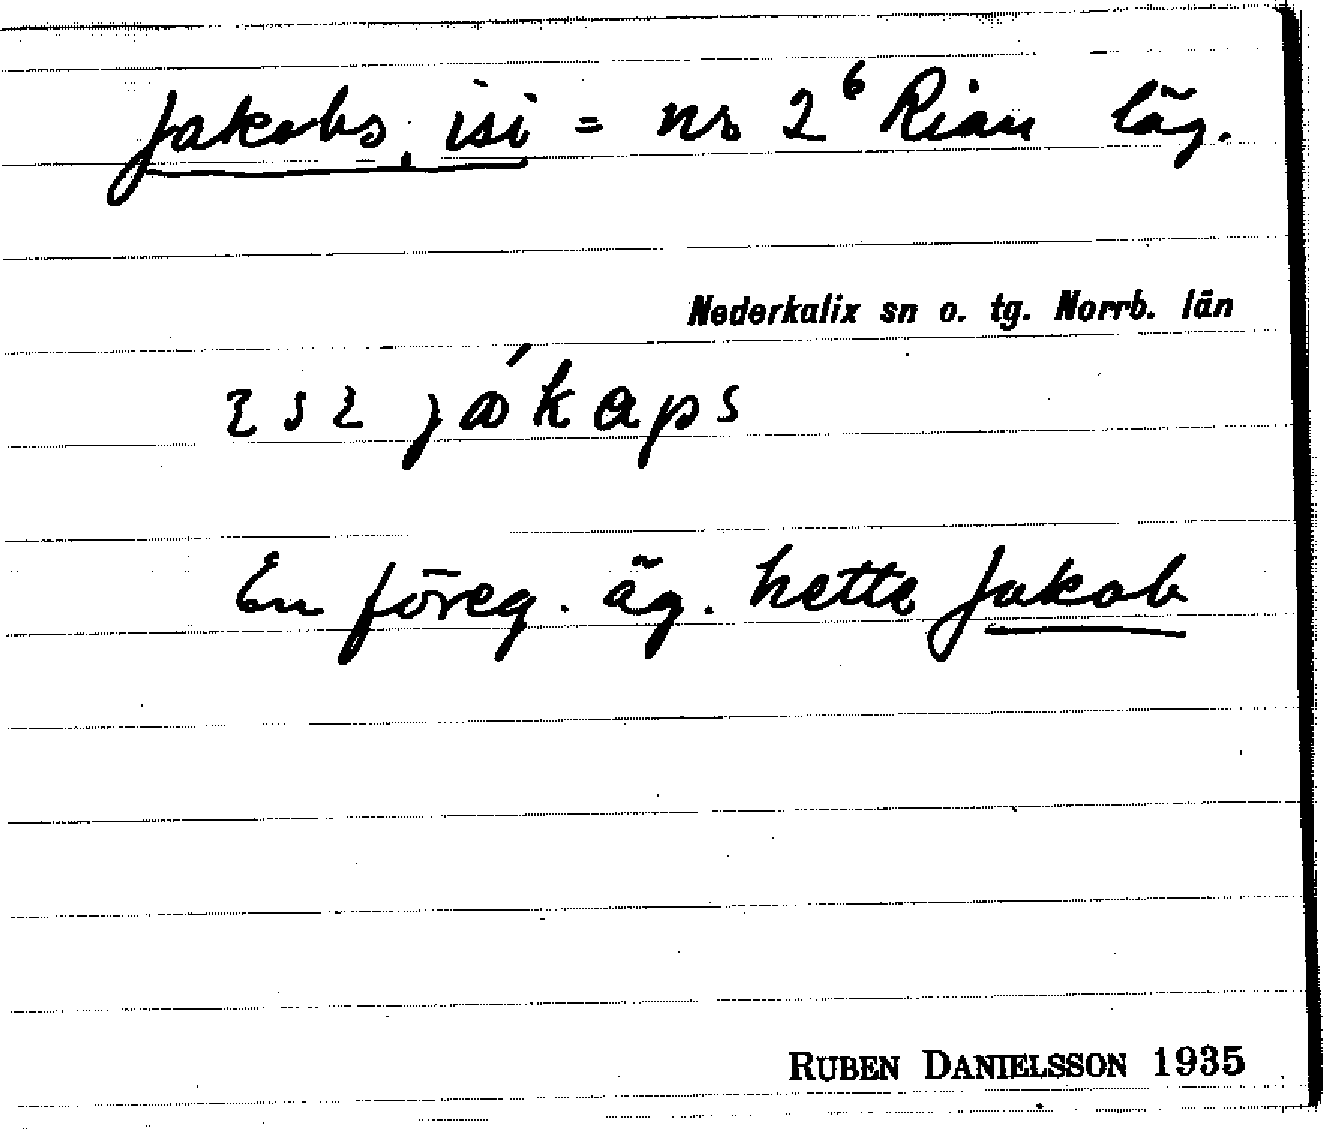 Jakobs, isi = nr 2⁶ Rian läg.
Nederkalix sn o. tg. Norrb. län
ɩsɩ jákaps
En föreg. äg. hette Jakob
RUBEN DANIELSSON 1935